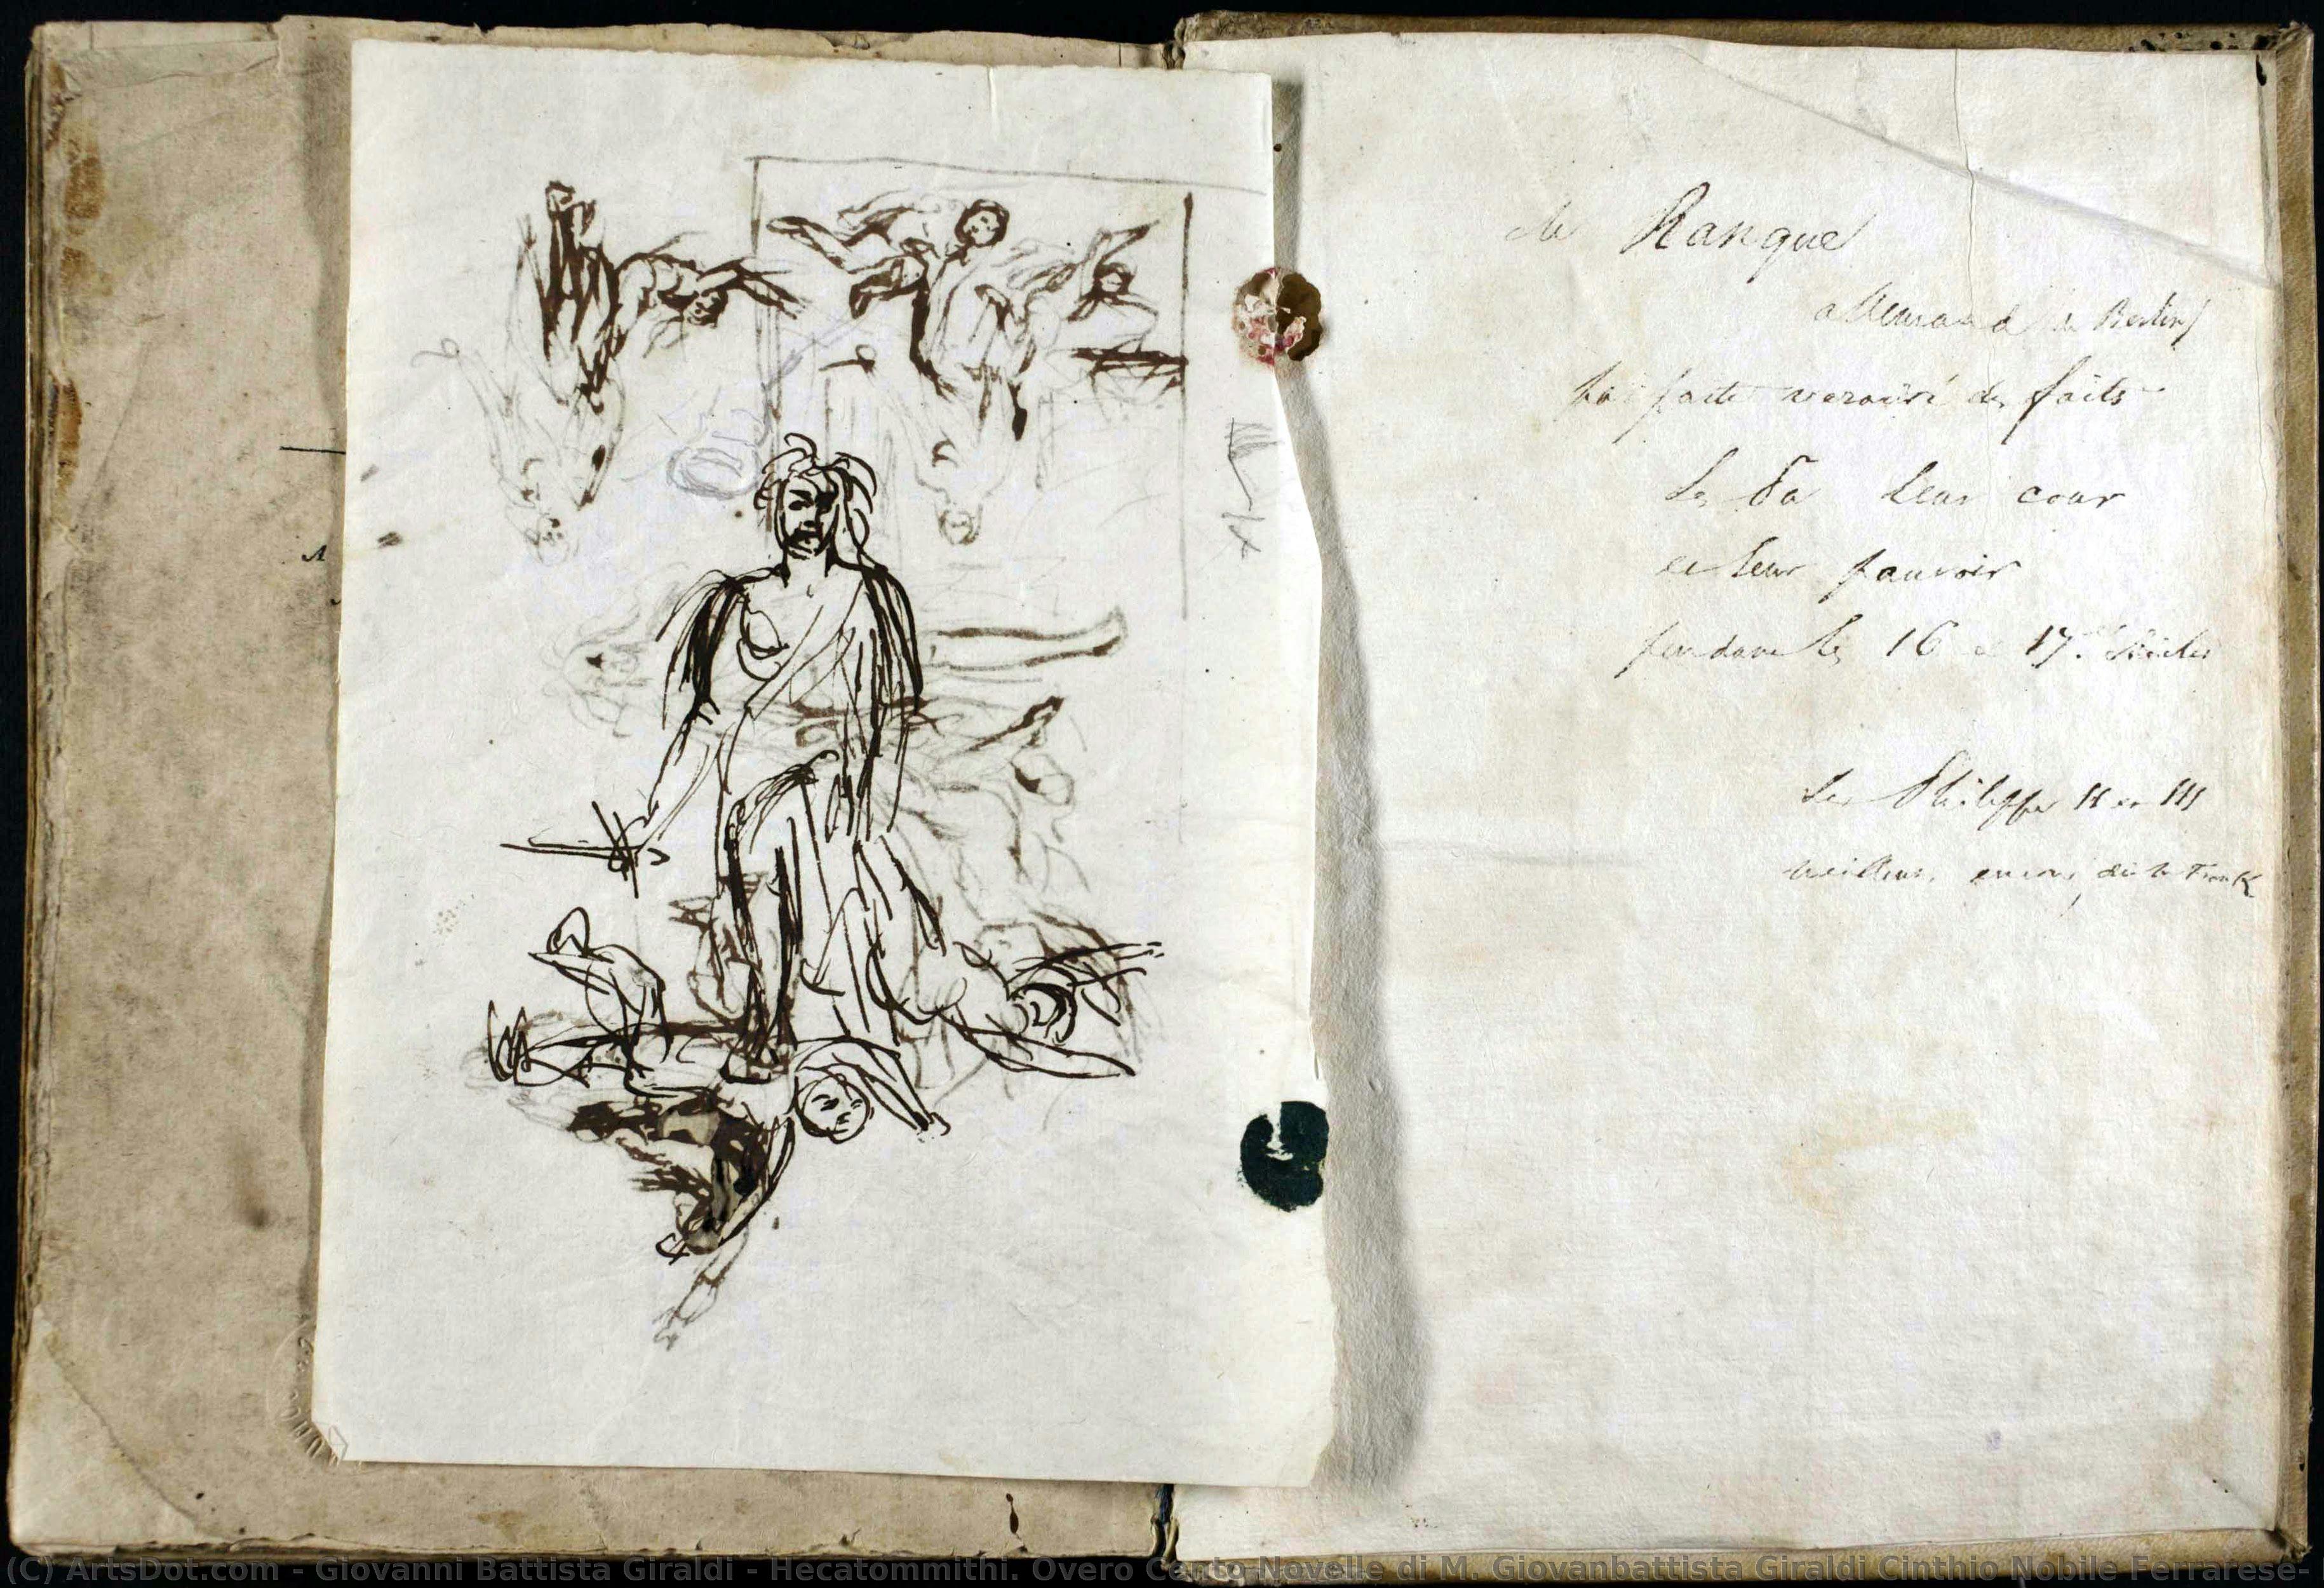 de Ranque
allemand (de Berlin)
faits
les Pa leur cour
et leur pouvoir
pendant les 16 et 17.es Siècles
les Philippe II et III
meilleur encore, dit le Frank
(C) ArtsDot.com - Giovanni Battista Giraldi - Hecatommithi. Overo Cento Novelle di M. Giovanbattista Giraldi Cinthio Nobile Ferrarese-